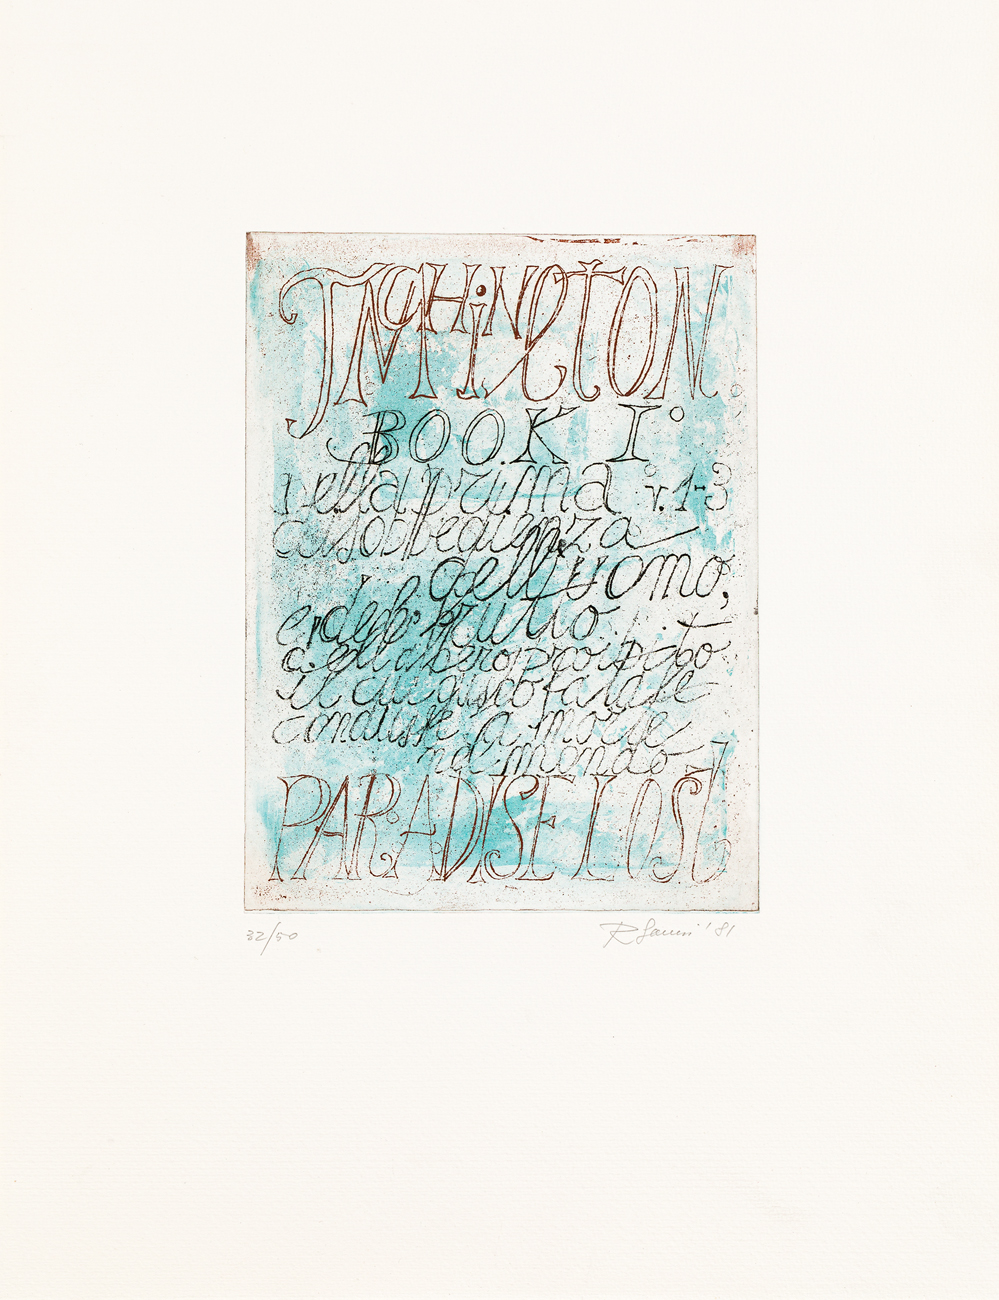 JOHN MiLTON
BOOK I°
nella prima v. 1-3
disobbedienza
dell'uomo,
e del frutto
dell'albero proibito
il cui gusto fatale
condusse la morte
nel mondo
PARADISE LOST
32/50 R Sanesi '81